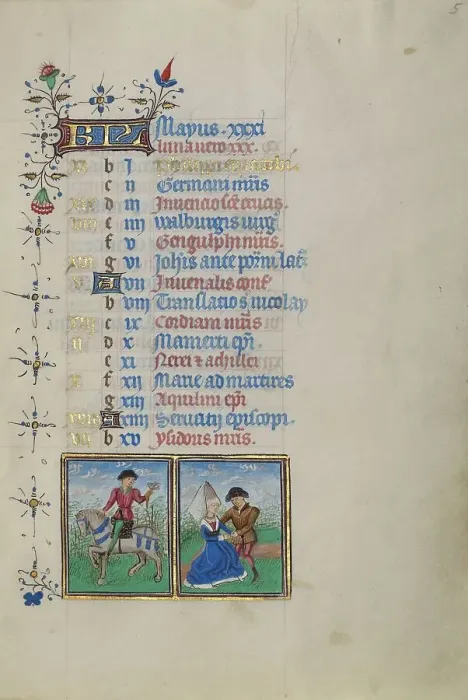 5
KL Mayus · xxxi
luna vero xxx.
b i
c ii Germani mris
d iii Inuencio sce crucis.
e iiii walburgis uirg
f v Gengulphi mris.
g vi Johis ante portam lat
A vii Iuuenalis conf
b viii Translatio s nicolay
c ix Gordiani mris
d x Mamerti epi.
e xi Nerei z achillei
f xii Marie ad martires
g xiii Aquilini epi
A xiiii Seruatii episcopi.
b xv ysidoris mris.